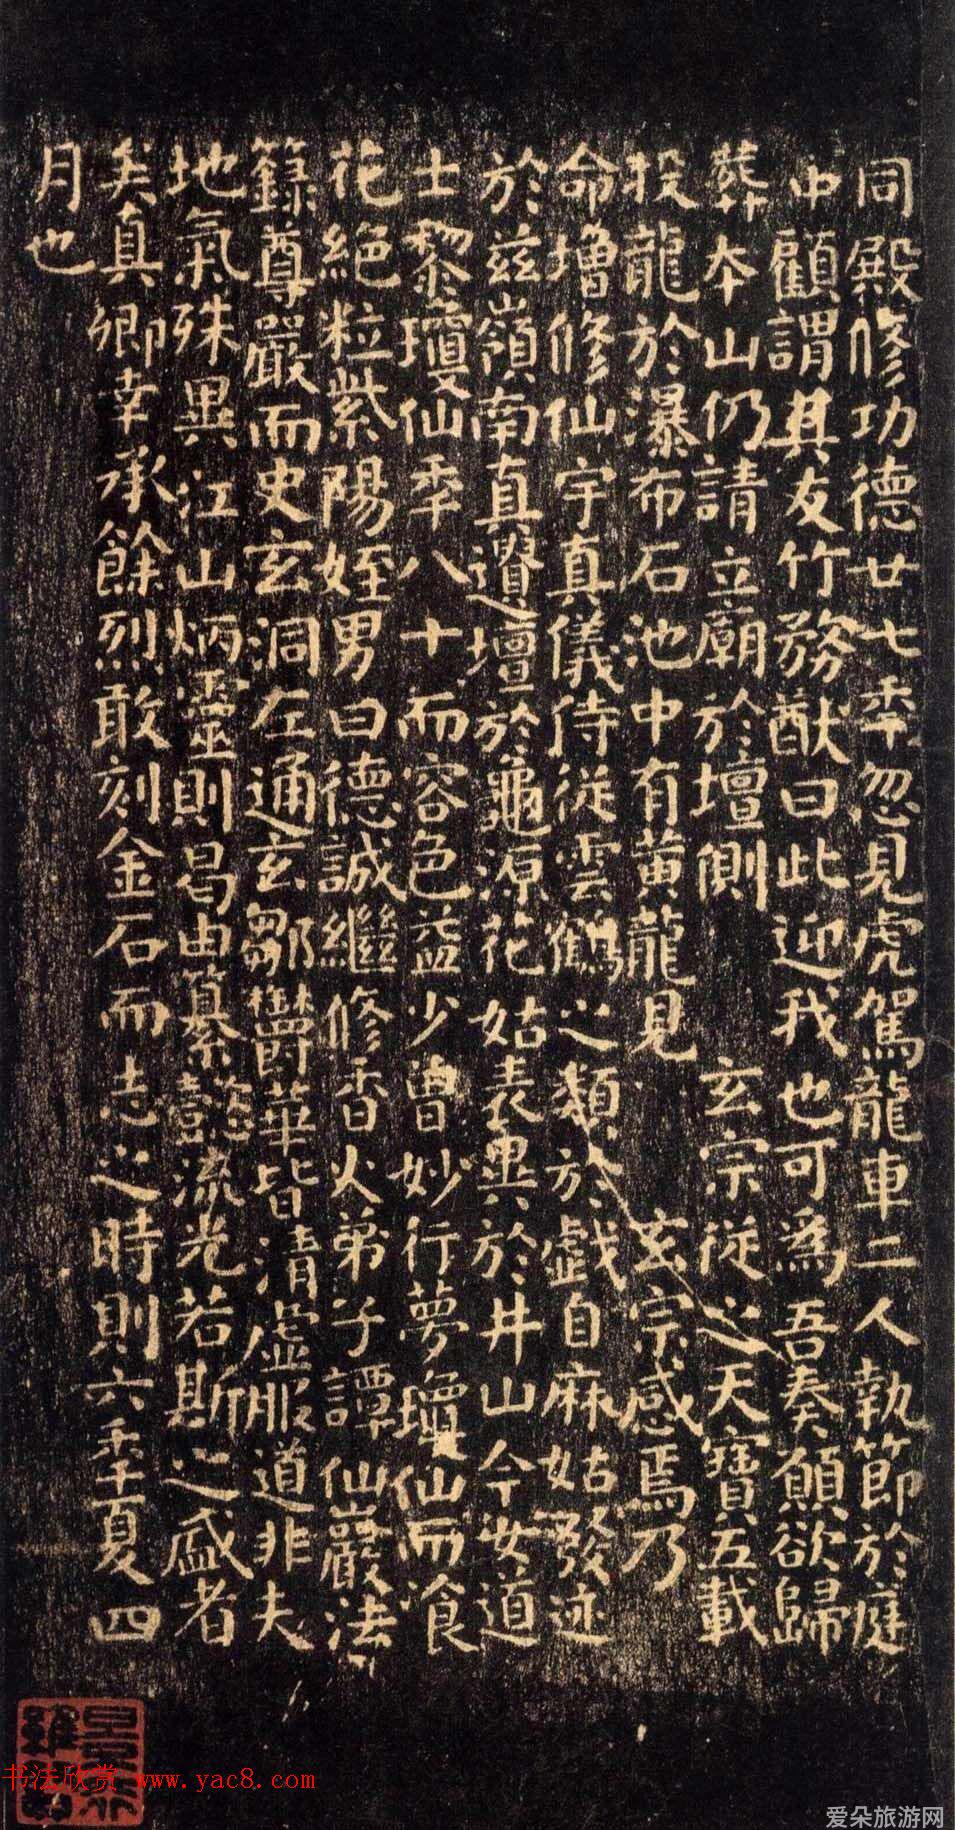 同殿修功德廿七秊忽見虎駕龍車二人執節於庭
中顧謂其友竹務猷曰此迎我也可為吾奏願欲歸
葬本山仍請立廟於壇側 玄宗從之天寶五載
投龍於瀑布石池中有黃龍見 玄宗感焉乃
命增修仙宇真儀侍從雲鶴之類於戲自麻姑發迹
於茲嶺南真遺壇於龜源花姑表異於井山今女道
士黎瓊仙秊八十而容色益少曾妙行夢瓊仙而飡
花絕粒紫陽姪男曰德誠繼修香火弟子譚仙巖法
籙尊嚴而史玄洞左通玄鄒鬱華皆清虛服道非夫
地氣殊異江山炳靈則曷由纂懿流光若斯之盛者
矣真卿幸承餘烈敢刻金石而志之時則六秊夏四
月也
书法欣赏 www.yac8.com
爱朵旅游网